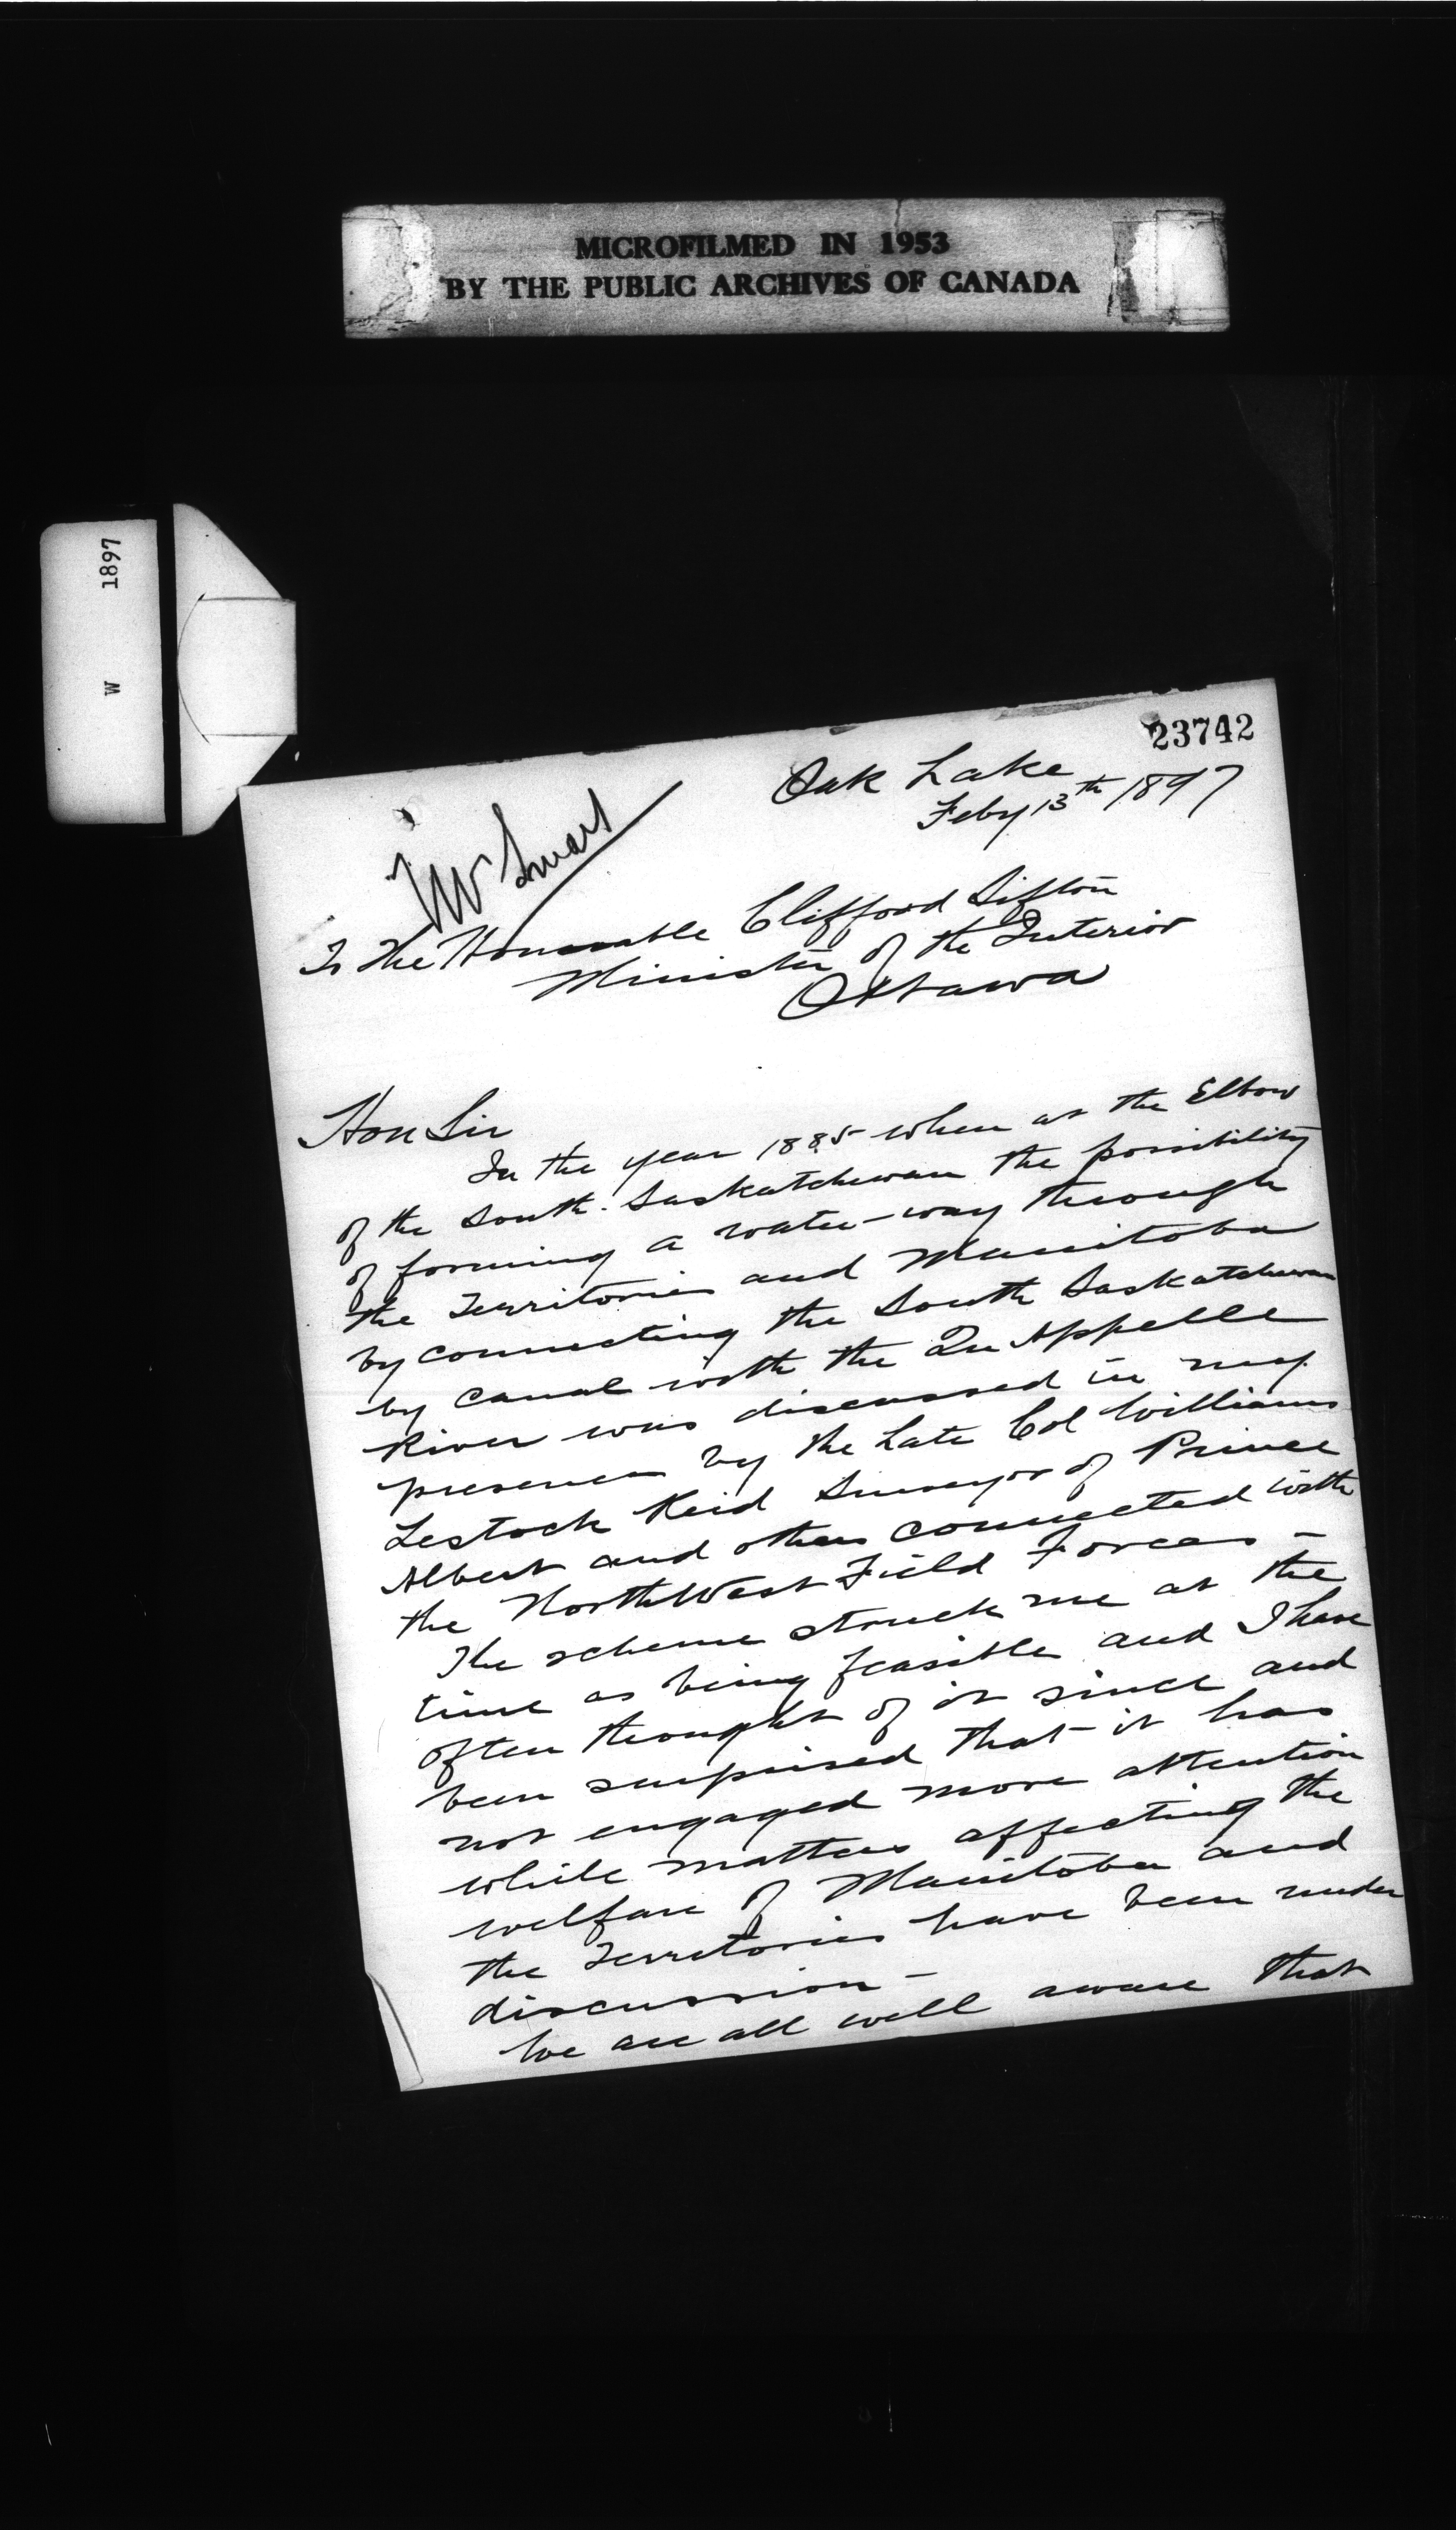 MICROFILMED IN 1953
BY THE PUBLIC ARCHIVES OF CANADA
W 1897
23742
Oak Lake
Feby 13th 1897
Mr Smart
To The Honourable Clifford Sifton
Minister of the Interior
Ottawa
Hon Sir
In the year 1885 when at the Elbow
of the South. Saskatchewan the possibility
of forming a water-way through
the Territories and Manitoba
by connecting the South Saskatchewan
by canal with the Qu Appelle
River was discussed in my
presence by the Late Col Williams
Lestock Reid Surveyor of Prince
Albert and others connected with
the NorthWest Field Forces -
The scheme struck me at the
time as being feasible and I have
often thought of it since and
been surprised that it has
not engaged more attention
while matters affecting the
welfare of Manitoba and
the Territories have been under
discussion -
We are all well aware that